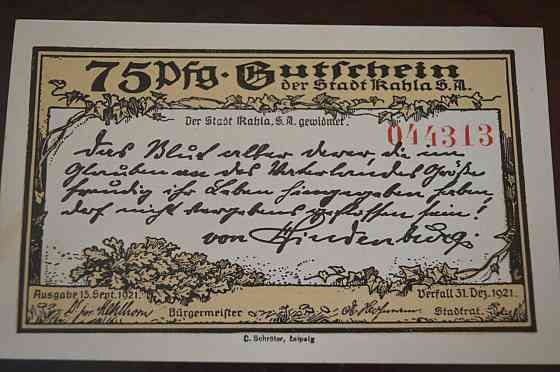 75 Pfg. Gutschein
der Stadt Kahla S.A.
Der Stadt Kahla, S.A. gewidmet.
044313
Das Blut aller derer, die im
Glauben an des Vaterlandes Größe
freudig ihr Leben hingegeben haben,
darf nicht vergebens geflossen sein!
von Hindenburg.
Ausgabe 15. Sept. 1921.
Verfall 31. Dez. 1921.
Bürgermeister
Stadtrat.
C. Schröter, Leipzig